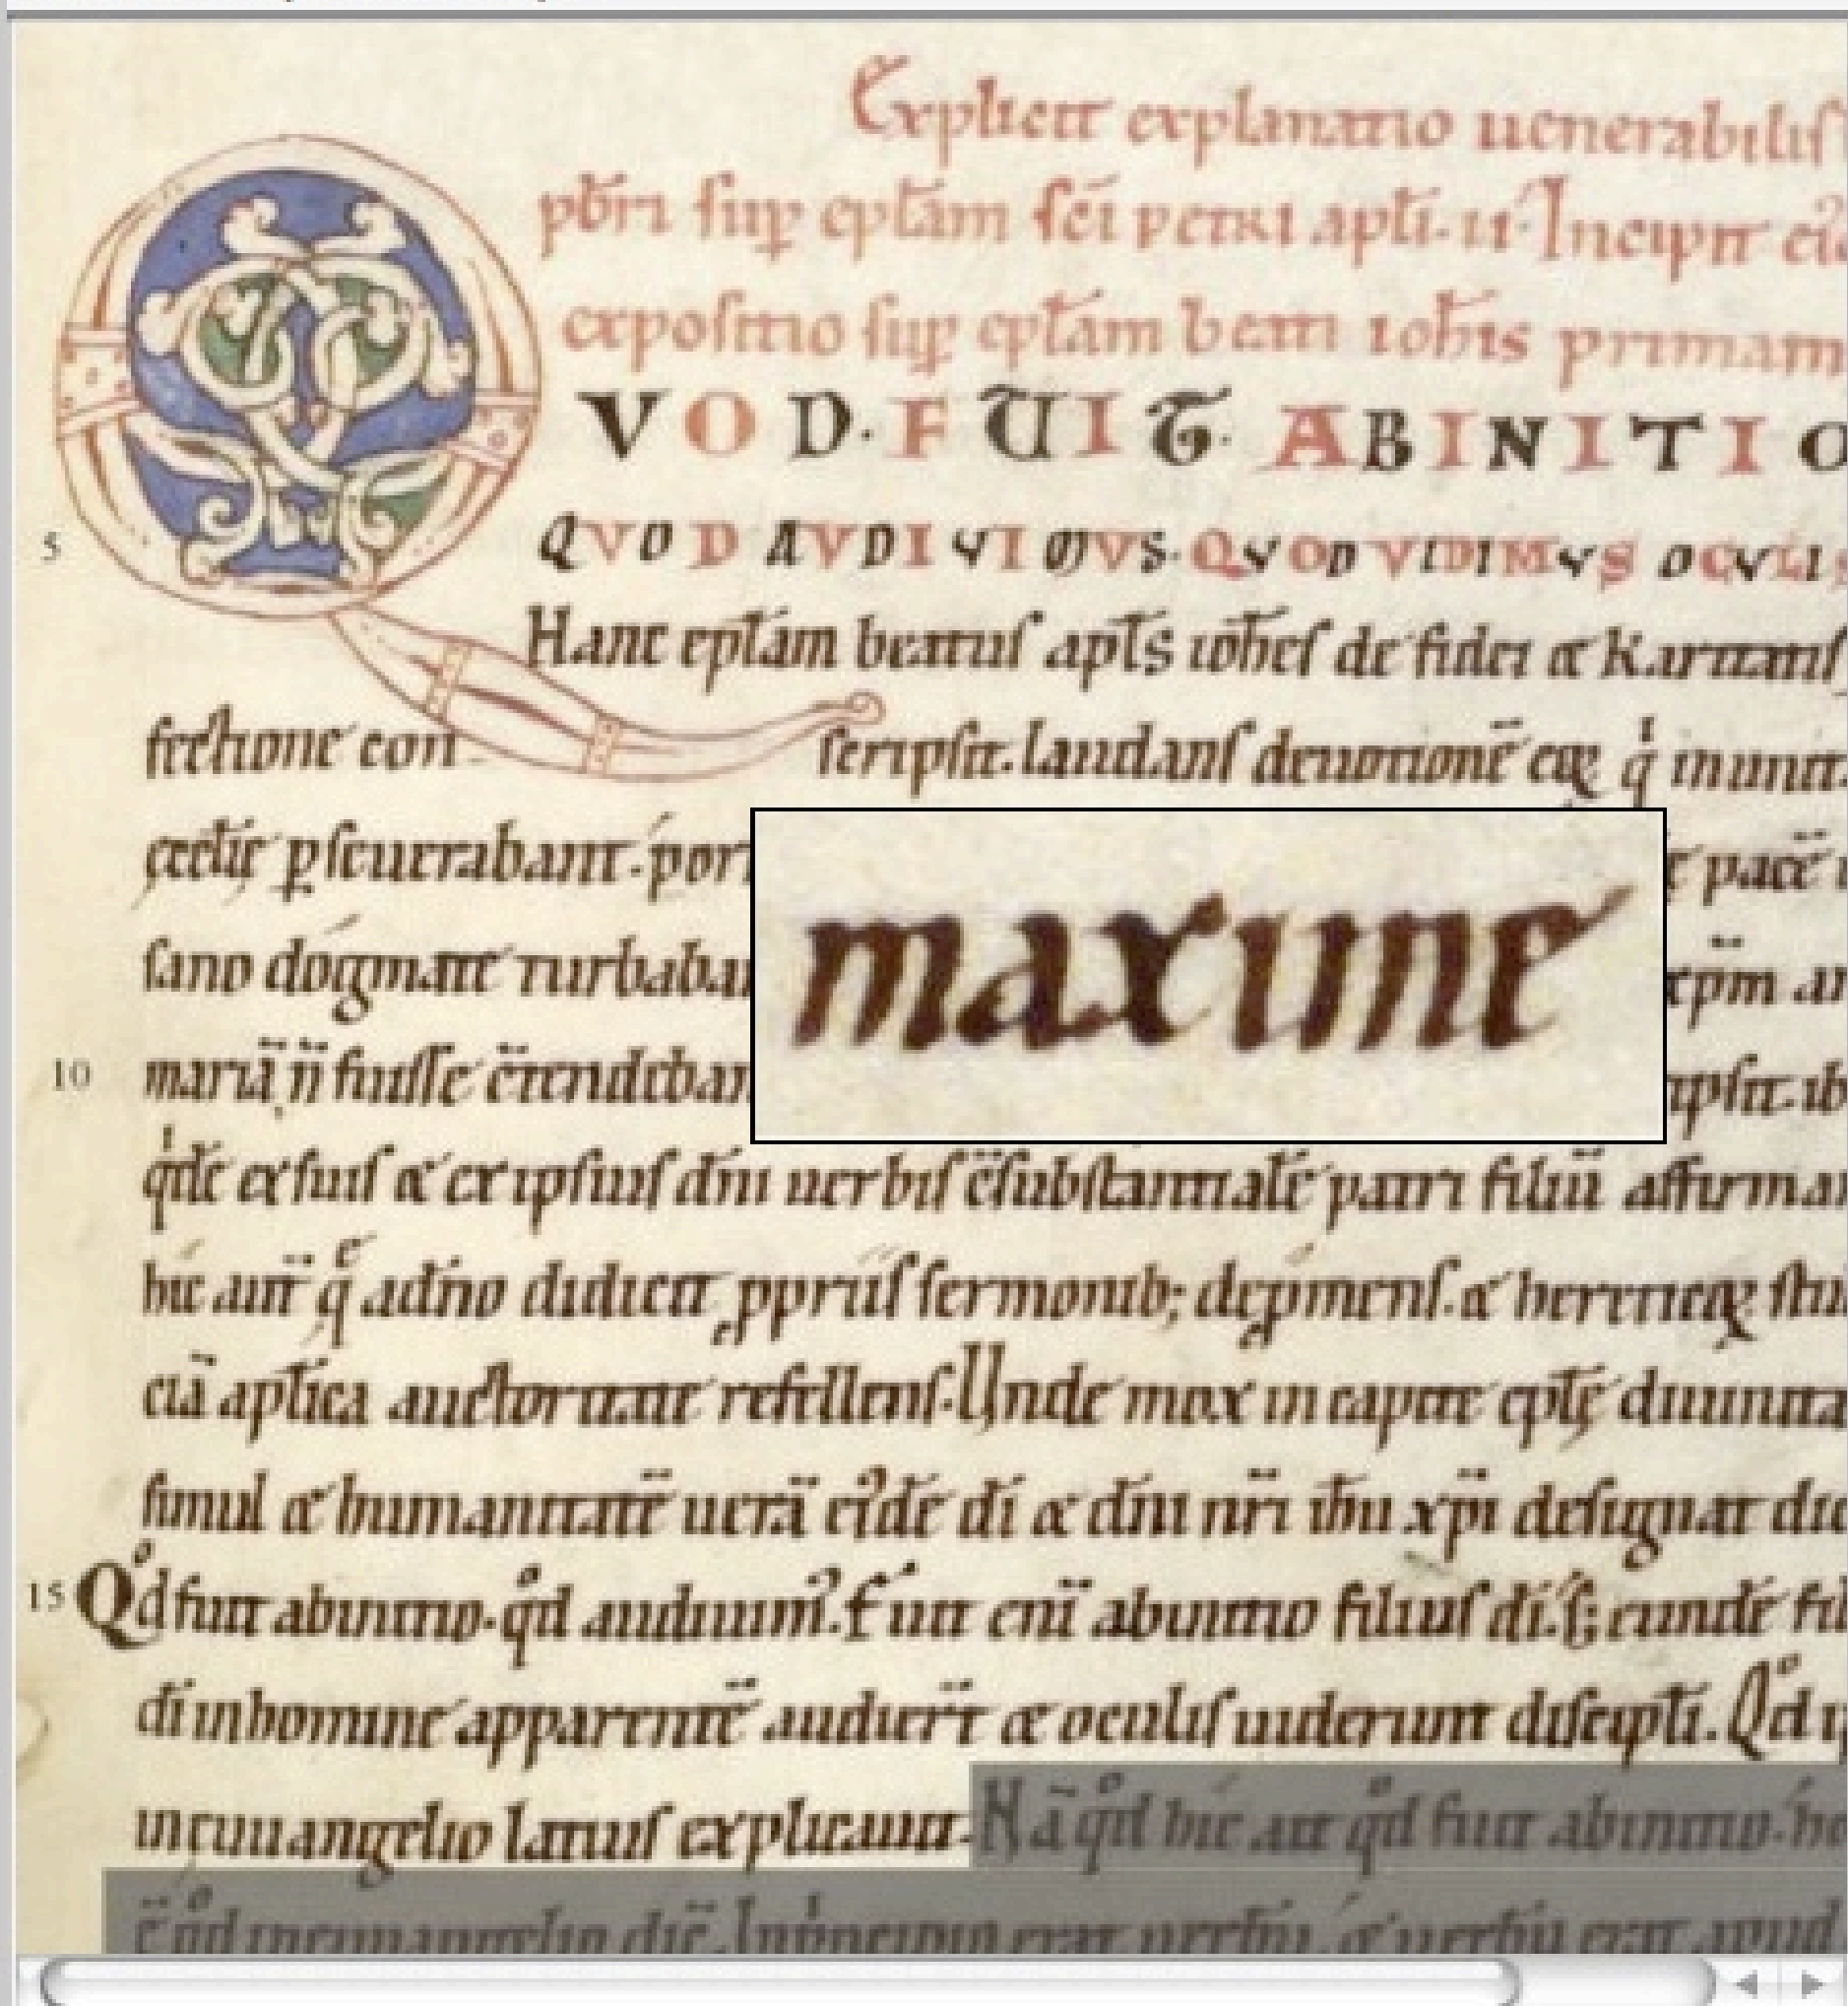 Explicit explanatio uenerabilis
pb̄ri sup̱ ep̄lam sc̄i petri apl̄i. ii. Incipit ei
expositio sup̱ ep̄lam beati ioh̄is primam
VOD. FUIT. ABINITIO
QVOD AVDIVIMVS. QVOD VIDIMVS OCVLIS
5
Hanc ep̄lam beatus apl̄s ioh̄es de fidei & karitatis
fectione con scripsit. laudans deuotionē eoꝝ qⁱ inunit.
ęccl̄ię p̱seuerabant. por pacē
maxime
sano dogmate turbaba xp̄m an
10
mariā n̄ fuisse c̄tendeban ipsit. ib
qⁱdē ex suis & ex ipsius dn̄i uerbis c̄substantialē patri filiū affirma
hic aut̄ qͤ adn̄o didicit ꝓpriis sermonib; dep̱mens. & hereticoꝝ stu
ciā apl̄ica auctoritate refellens. Unde mox in capite ep̄lę diuinita
simul & humanitatē uerā eiꝰdē dī & dn̄i nr̄i ih̄u xp̄i designat dic
15
Qͦd fuit abinitio. qͦd audiuimꝰ. Fuit enī abinitio filius dī. s; eundē fi
dī inhomine apparentē audier̄t & oculis uiderunt discipl̄i. Qͦd
ineuuangelio latius explicauit. Nā qͦd hic ait qͦd fuit abinitio. ho
ē qͦd ineuuangelio dic̄. Inpⁱncipio erat uerbū. & uerbū erat apud